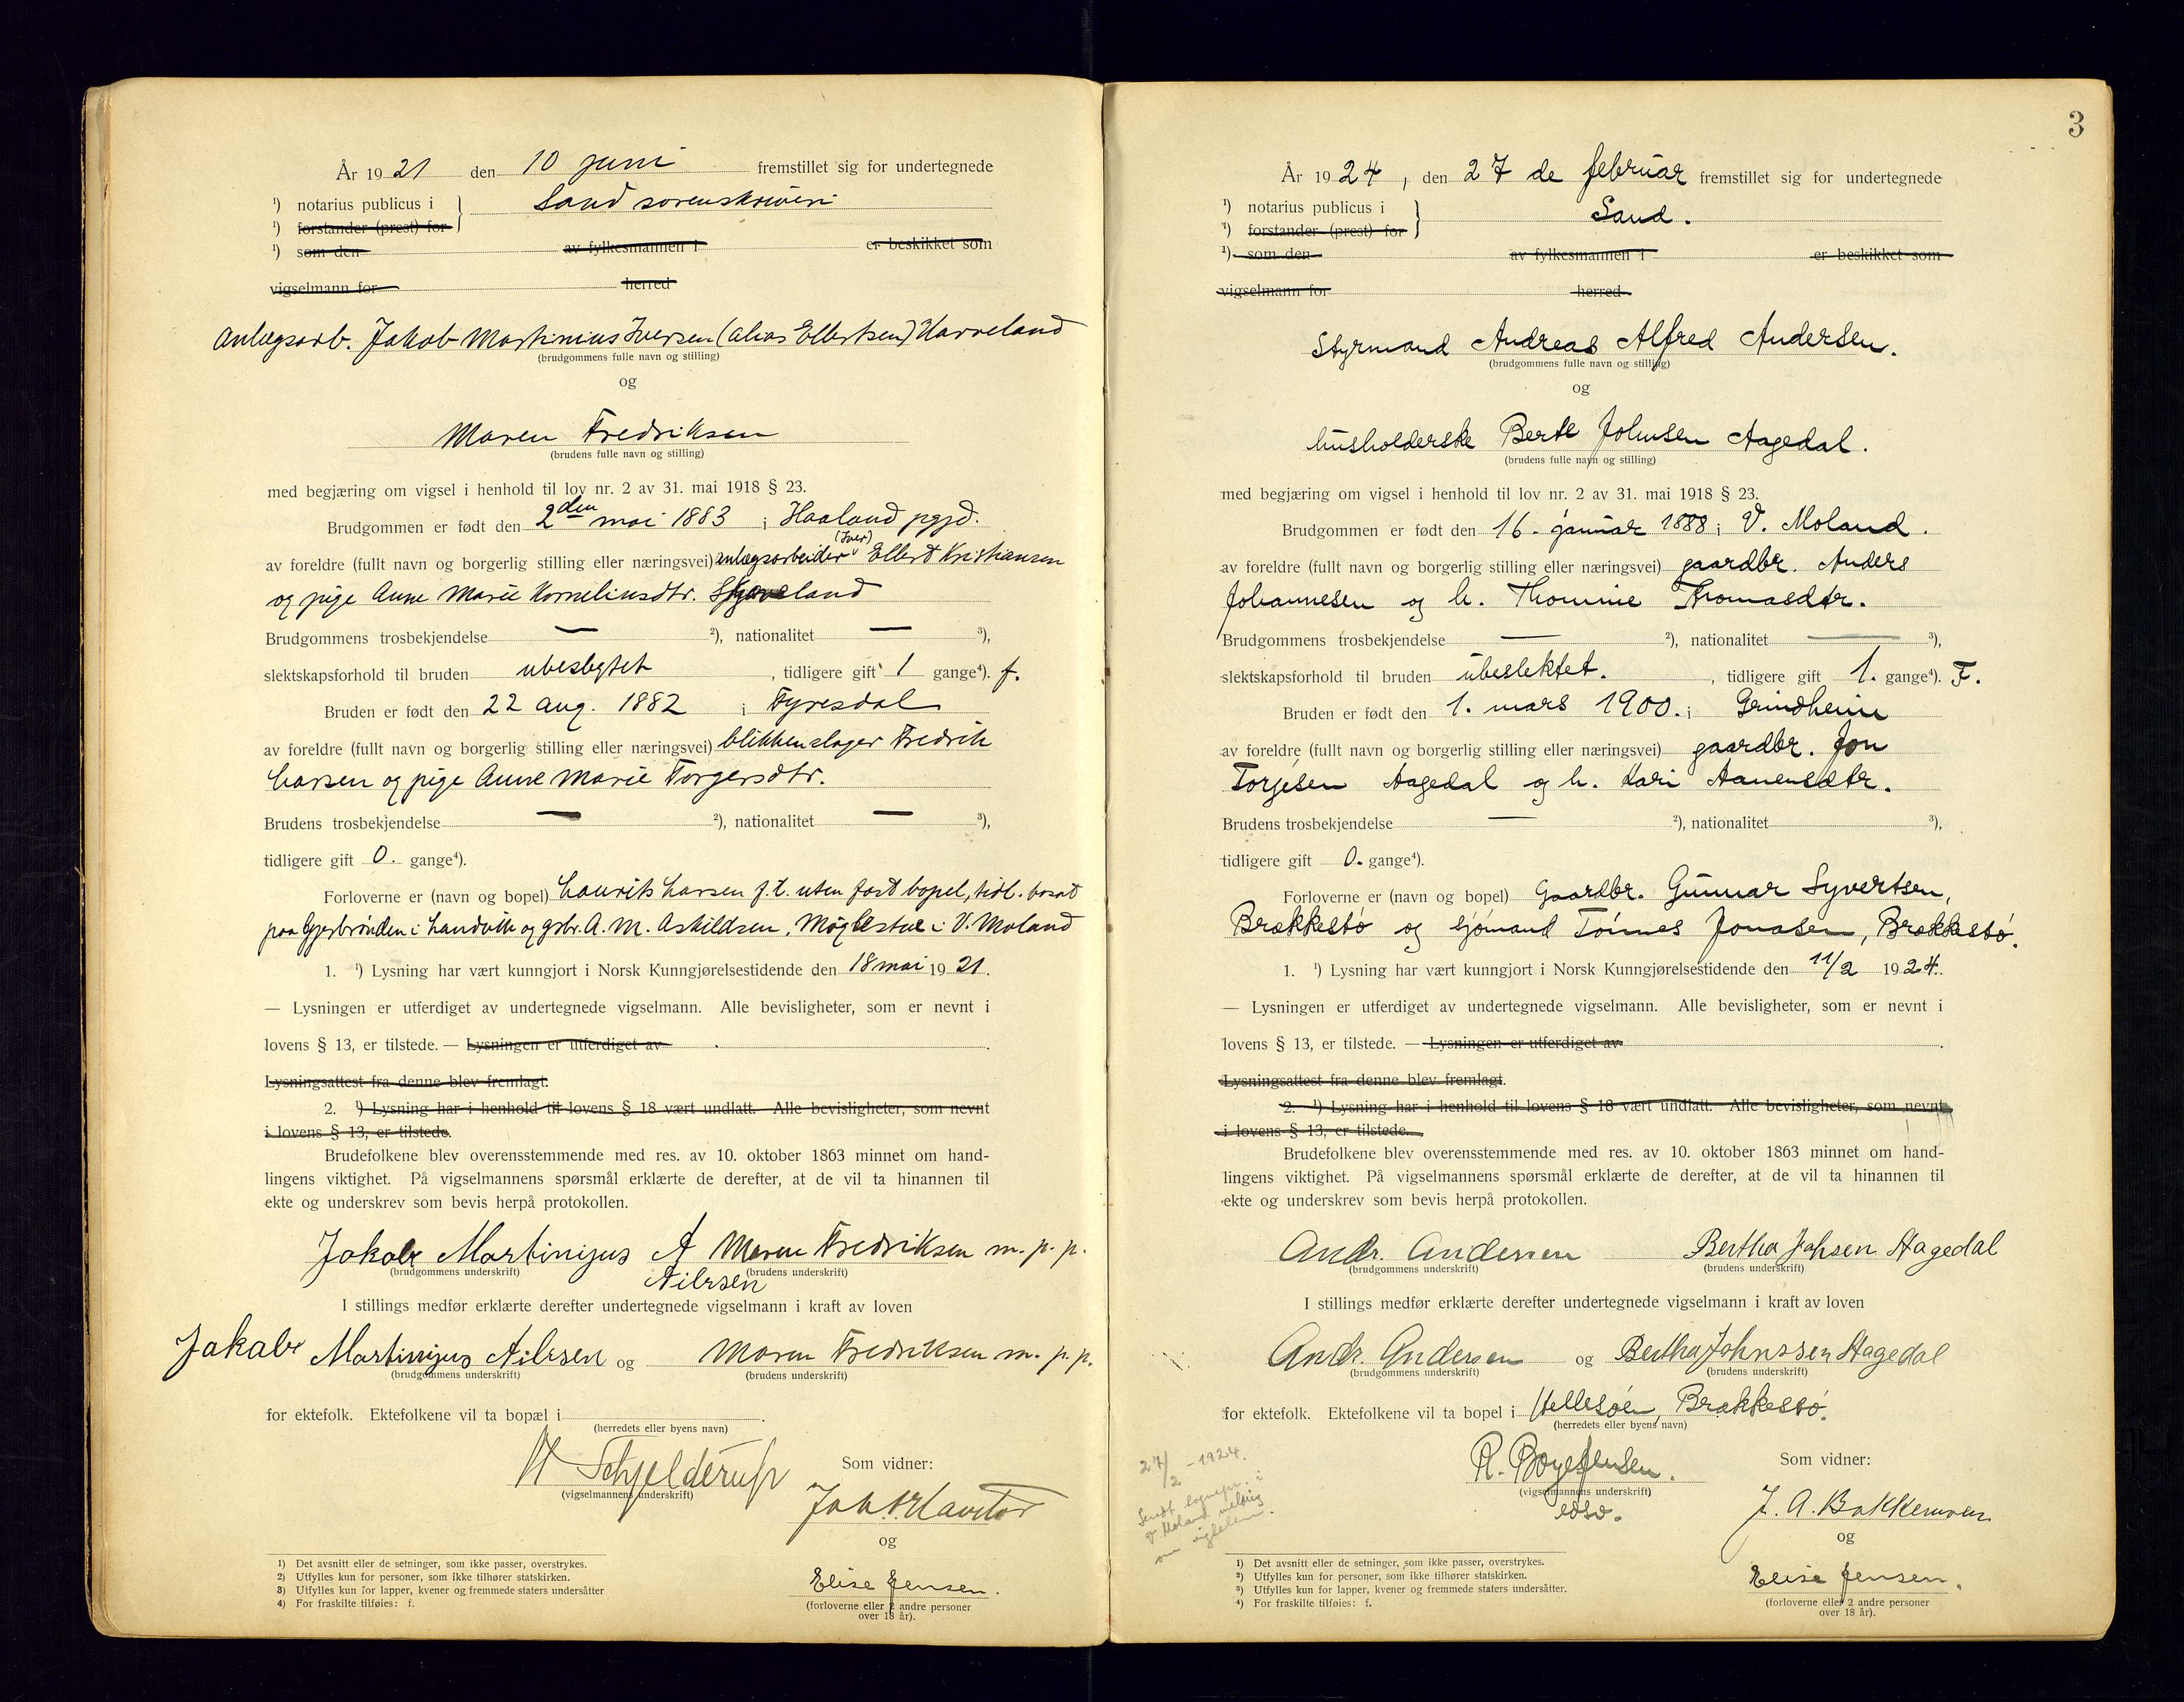 År 1921 den 10 juni fremstillet sig for undertegnede
¹) notarius publicus i } Sand sorenskriveri
¹) forstander (prest) for
¹) som den av fylkesmannen i er beskikket som
vigselmann for herred
Anlægsarb. Jakob Martinius Iversen (alias Ellertsen) Harveland
(brudgommens fulle navn og stilling)
og
Maren Fredriksen
(brudens fulle navn og stilling)
med begjæring om vigsel i henhold til lov nr. 2 av 31. mai 1918 § 23.
Brudgommen er født den 2den mai 1883 i Haaland pgjd.
(Iver)
av foreldre (fullt navn og borgerlig stilling eller næringsvei) anlægsarbeider Ellert Kristiansen
og pige Anne Marie Korneliusdtr.
Brudgommens trosbekjendelse — ²), nationalitet — ³),
slektskapsforhold til bruden ubeslegtet, tidligere gift 1 gange⁴). f.
Bruden er født den 22 aug. 1882 i Fyresdal
av foreldre (fullt navn og borgerlig stilling eller næringsvei) blikkenslager Fredrik
Larsen og pige Anne Marie Torgersdtr.
Brudens trosbekjendelse — ²), nationalitet — ³),
tidligere gift 0. gange⁴).
Forloverne er (navn og bopel) Laurits Larsen f.t. uten fast bopel, tidl. bosat
paa Gjerbrønden i Landvik og gbr. A. M. Askildsen, Møglestue i V. Moland
1. ¹) Lysning har vært kunngjort i Norsk Kunngjørelsestidende den 18 mai 1921.
— Lysningen er utferdiget av undertegnede vigselmann. Alle bevisligheter, som er nevnt i
lovens § 13, er tilstede. — Lysningen er utferdiget av .
Lysningsattest fra denne blev fremlagt.
2. ¹) Lysning har i henhold til lovens § 18 vært undlatt. Alle bevisligheter, som nevnt
i lovens § 13, er tilstede.
Brudefolkene blev overensstemmende med res. av 10. oktober 1863 minnet om hand-
lingens viktighet. På vigselmannens spørsmål erklærte de derefter, at de vil ta hinannen til
ekte og underskrev som bevis herpå protokollen.
Jakob Martinijus A Maren Fredriksen m. p. p.
(brudgommens underskrift) (brudens underskrift)
Ailrsen
I stillings medfør erklærte derefter undertegnede vigselmann i kraft av loven
Jakob Martinijus Ailrsen og Maren Fredriksen m. p. p.
(brudgommens underskrift) (brudens underskrift)
for ektefolk. Ektefolkene vil ta bopæl i .
(herredets eller byens navn)
H Schjelderup
(vigselmannens underskrift)
Som vidner:
og
Elise Jensen.
(forloverne eller 2 andre personer
over 18 år).
1) Det avsnitt eller de setninger, som ikke passer, overstrykes.
2) Utfylles kun for personer, som ikke tilhører statskirken.
3) Utfylles kun for lapper, kvener og fremmede staters undersåtter
4) For fraskilte tilføies: f.
3
År 1924, den 27 de februar fremstillet sig for undertegnede
¹) notarius publicus i } Sand.
¹) forstander (prest) for
¹) som den av fylkesmannen i er beskikket som
vigselmann for herred
Styrmand Andreas Alfred Andersen.
(brudgommens fulle navn og stilling)
og
husholderske Berte Johnsen Aagedal.
(brudens fulle navn og stilling)
med begjæring om vigsel i henhold til lov nr. 2 av 31. mai 1918 § 23.
Brudgommen er født den 16. januar 1888 i V. Moland.
av foreldre (fullt navn og borgerlig stilling eller næringsvei) gaardbr. Anders
Johannesen og h. Thomine Thomasdtr.
Brudgommens trosbekjendelse — ²), nationalitet — ³),
slektskapsforhold til bruden ubeslektet., tidligere gift 1. gange⁴). F.
Bruden er født den 1. mars 1900. i Grindheim
av foreldre (fullt navn og borgerlig stilling eller næringsvei) gaardbr. Jon
Torjesen Aagedal og h. Kari Aanensdtr.
Brudens trosbekjendelse — ²), nationalitet ³),
tidligere gift 0. gange⁴).
Forloverne er (navn og bopel) Gaardbr. Gunnar Syvertsen,
Brækkestø og sjømand Tønnes Jonassen, Brækkestø.
1. ¹) Lysning har vært kunngjort i Norsk Kunngjørelsestidende den 11/2 1924.
— Lysningen er utferdiget av undertegnede vigselmann. Alle bevisligheter, som er nevnt i
lovens § 13, er tilstede. — Lysningen er utferdiget av .
Lysningsattest fra denne blev fremlagt.
2. ¹) Lysning har i henhold til lovens § 18 vært undlatt. Alle bevisligheter, som nevnt
i lovens § 13, er tilstede.
Brudefolkene blev overensstemmende med res. av 10. oktober 1863 minnet om hand-
lingens viktighet. På vigselmannens spørsmål erklærte de derefter, at de vil ta hinannen til
ekte og underskrev som bevis herpå protokollen.
Andr. Andersen Bertha Johsen Aagedal
(brudgommens underskrift) (brudens underskrift)
I stillings medfør erklærte derefter undertegnede vigselmann i kraft av loven
Andr. Andersen og Bertha Johnssen Aagedal
(brudgommens underskrift) (brudens underskrift)
for ektefolk. Ektefolkene vil ta bopel i Hellesøen, Brækkestø.
(herredets eller byens navn)
27/2 - 1924.
Sendt sognepr. i
V. Moland melding
om vigselen.
R. Boye Jensen.
(vigselmannens underskrift)
Som vidner:
J. A. Bakkemoen
og
Elise Jensen.
(forloverne eller 2 andre personer
over 18 år).
1) Det avsnitt eller de setninger, som ikke passer, overstrykes.
2) Utfylles kun for personer, som ikke tilhører statskirken.
3) Utfylles kun for lapper, kvener og fremmede staters undersåtter.
4) For fraskilte tilføies: f.